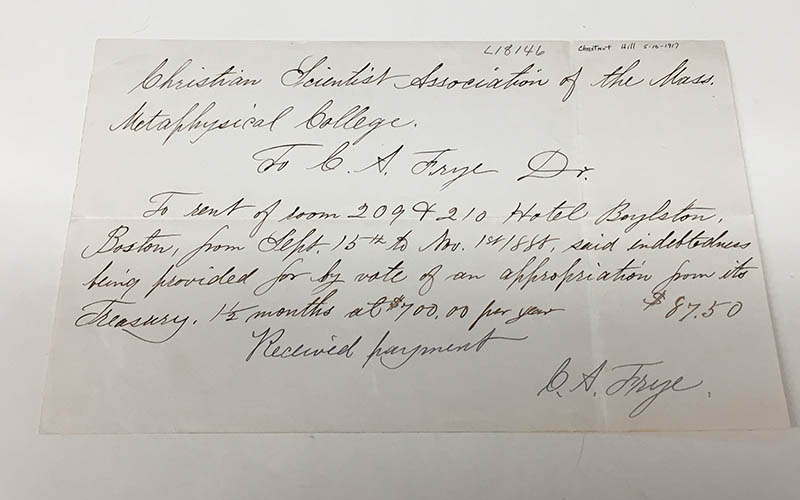 L18146
Chestnut Hill 5-10-1917
Christian Scientist Association of the Mass.
Metaphysical College.
To C. A. Frye Dr.
To rent of room 209 & 210 Hotel Boylston,
Boston, from Sept. 15th to Nov. 1st 1888, said indebtedness
being provided for by vote of an appropriation from its
Treasury. 1½ months at $700.00 per year $87.50
Received payment
C. A. Frye.